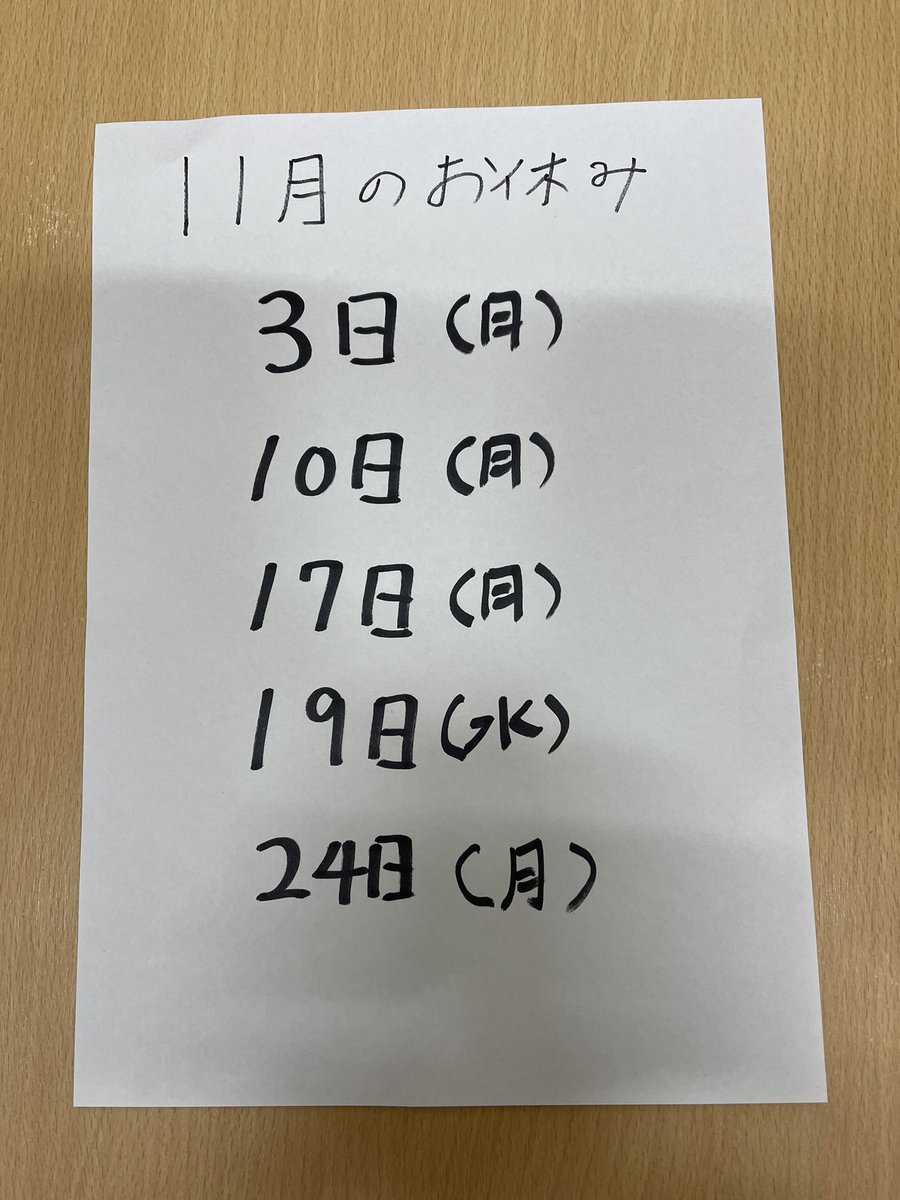 11月のお休み
3日(月)
10日(月)
17日(月)
19日(GK)
24日(月)